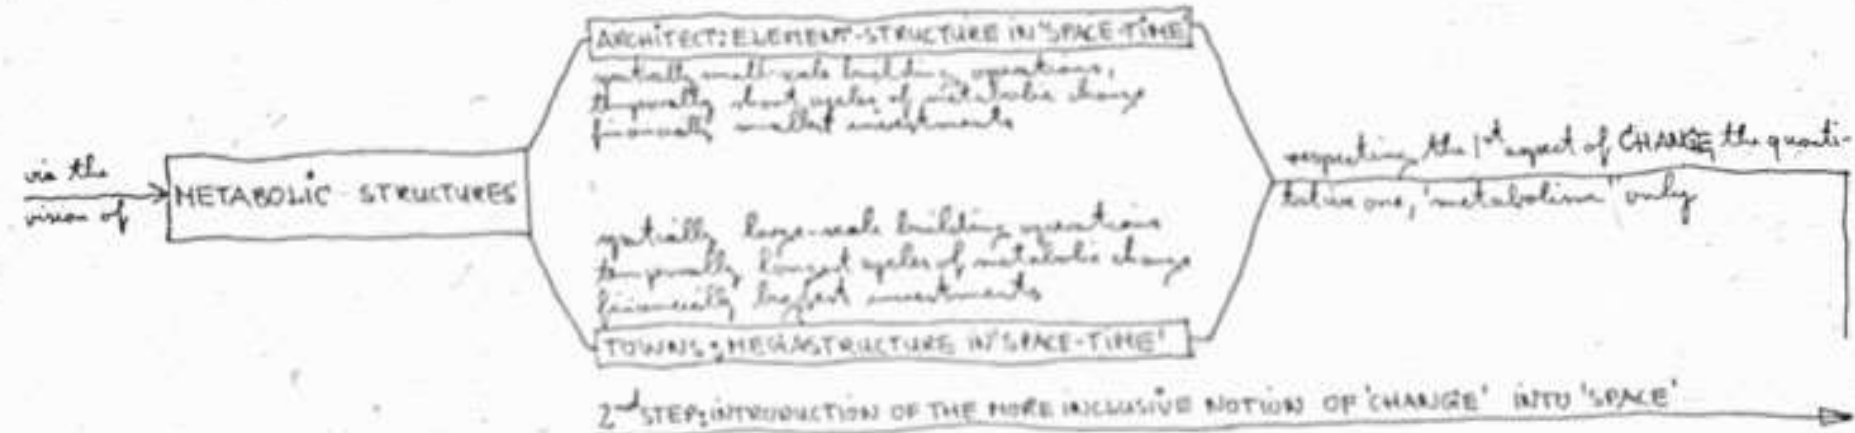 via the
vision of
METABOLIC STRUCTURES
ARCHITECT: ELEMENT-STRUCTURE IN 'SPACE-TIME'
spatially small-scale building operations,
temporally short cycles of metabolic change
financially smallest investments
spatially large-scale building operations
temporally longest cycles of metabolic change
financially biggest investments
TOWNS: MEGASTRUCTURE IN 'SPACE-TIME'
respecting the 1st aspect of CHANGE, the quanti-
tative one, 'metabolism' only
2nd STEP: INTRODUCTION OF THE MORE INCLUSIVE NOTION OF 'CHANGE' INTO 'SPACE'